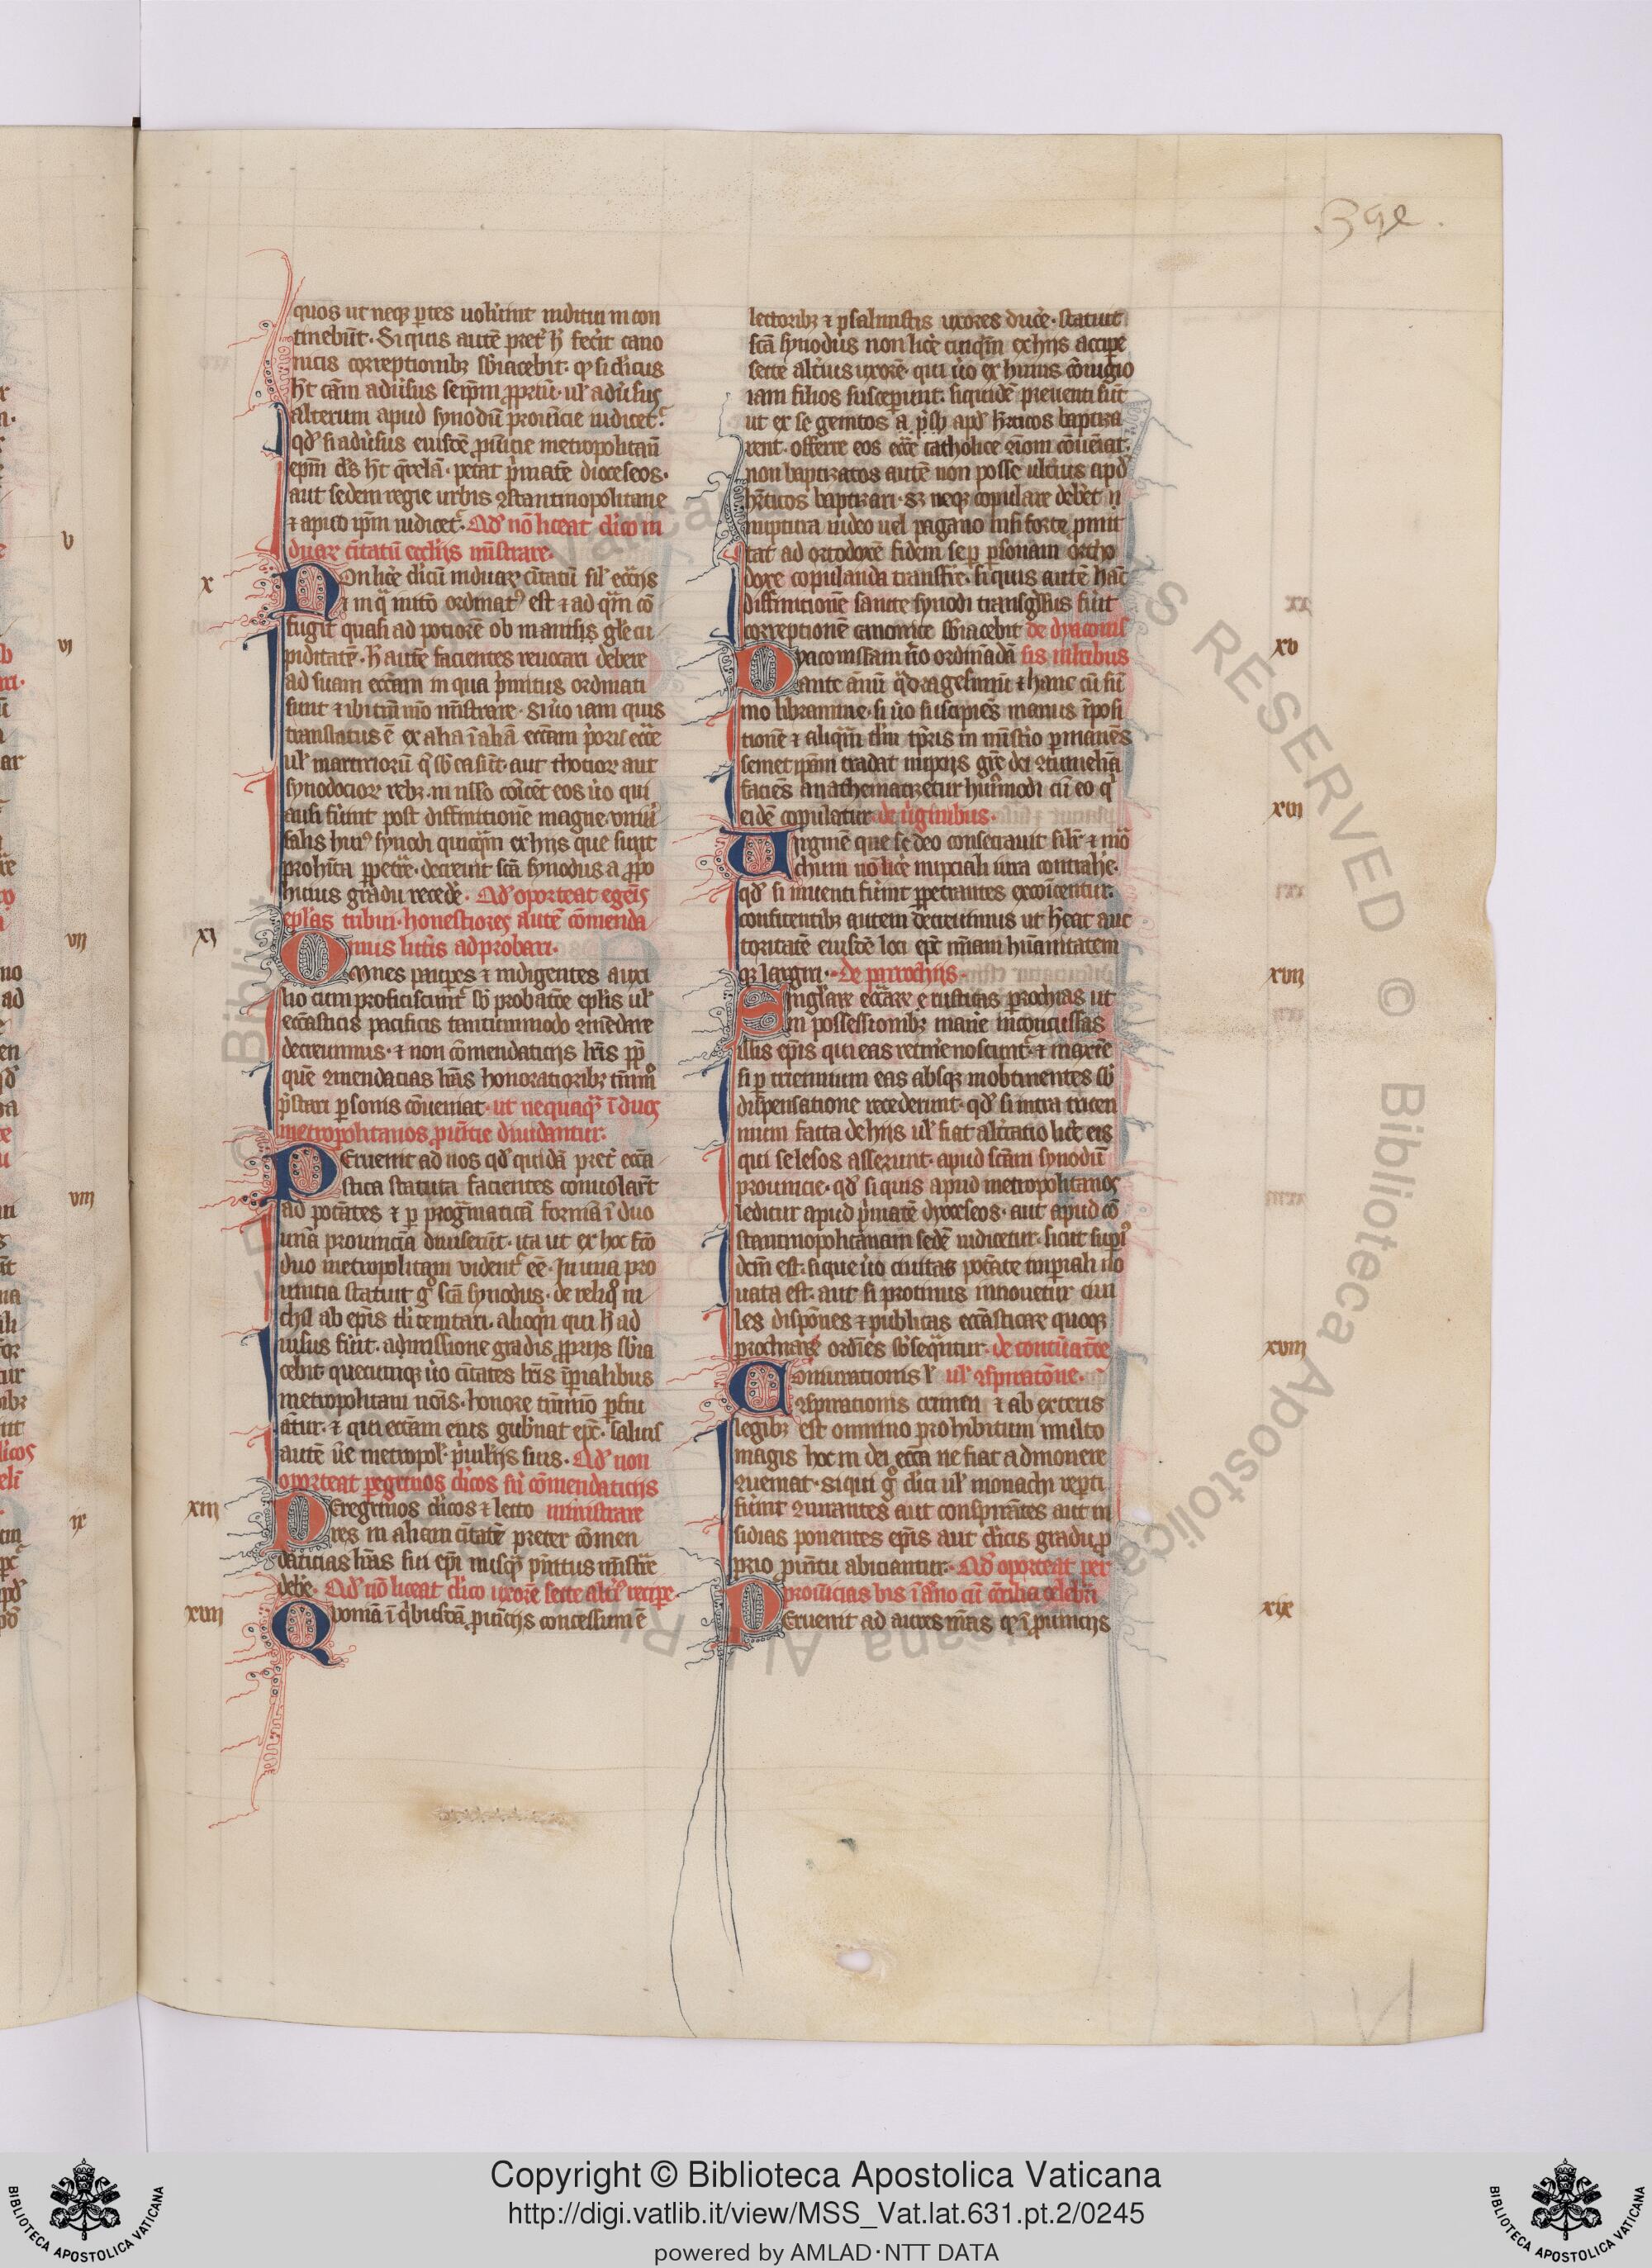 .392.
quos ut neqꝫ ꝑtes uolūint iuditiū in con
tinebūt. Si quis autē pret͛ h̄ fec̄it cano
nicis correptionibꝫ sb̄iacebit: qꝫ si cl̄icus
ht cām aduūsus seip̄m ꝓpriū. ul̄ aduūsus
alterum apud synodū prouīcie iudicet᷑.
qd̄ si aduūsus eiusdē ꝓuīcie metropolitanū
ep̄m cl̄s ht q̄relā. petat p̄matē dioceseos.
aut sedem regie urbis ꝯstantinopolitane
⁊ apud ip̄m iudicet᷑. Qd̄ nō liceat cl̄ico in
duaꝝ ciūtatū eccl̄iis mīstrare.
x
Non lice cl̄icū in duaꝝ ciūtatū sil̄ ecc̄iis
⁊ in q̄ initō ordinatꝰ est ⁊ ad q̄m cō
fugit quasi ad potiorē ob inanis gl̄e cu
piditatē. h̄ autē facientes reuocari debere
ad suam ecc̄am in qua p̄mitus ordinati
sunt ⁊ ibi tm̄ mō mīstrare. Si ūo iam quis
translatus ē ex alia ī aliā ecc̄am p̄oris ecc̄e
ul̄ martiriorū q̄ sb̄ ea sūt. aut
synodocioꝝ rebꝫ. in nullo cōicet eos ūo qui
ausi fūint post diffinitionē magne. uniūi
salis huiꝰ synodi quicq̄m ex hiis que sunt
prohi̅ta ꝑpetr̄e. decreuit scā synodus a ꝓp̄o
huius gradu recedē. Qd̄ oporteat egen̄s
epl̄as tribui. honestiores autē cōmenda
xi
tiuis litt̄is adprobari.
Omnes paupes ⁊ indigentes auxi
lio cum proficiscunt᷑ sb̄ probatōe epl̄is ul̄
ecc̄asticis pacificis tantummodo ꝯmēdare
decreuimus. ⁊ non cōmendaticiis lr̄is ꝓp̄
quē ꝯmendacias lr̄as honoratioribꝫ tm̄mō
p̄stari ꝑsonis cōueniat. ut nequaq̄ ī duos
metropolitanos ꝓuīcie diuidantur.
Peruenit ad nos qd̄ quidā pret͛ ecc̄a
stica statuta facientes conuolar̄t
ad potātes ⁊ ꝑ progmaticā formā ī duo
unā prouinciā diuiserūt. ita ut ex hoc fc̄o
duo metropolitani uident᷑ eē. In una pro
uincia statuit gͦ scā synodus. de reliqͦ ni
chil ab ep̄is tl̄i temtari. alioq̄n qui h̄ ad
nisus fūit. admissione gradis ꝓpriis sb̄ia
cebit. quecumqꝫ ūo ciūtates lr̄is īperialibus
metropolitani noīs. honore tm̄mō ꝑfru
atur. ⁊ qui ecc̄am eius gub̄nat ep̄c. saluis
autē ūe metropol. p̄uilegiis suis. Qd̄ non
oporteat pegrinos cl̄icos sn̄ cōmendaticiis
xiii
ministrare
Peregrinos cl̄icos ⁊ lecto
res in alienā ciūtatē preter cōmen
daticias lr̄as sui ep̄i nusq̄ p̄nitus mīstr̄e
debē. Qd̄ nō liceat cl̄ico uxorē secte alt̄iꝰ recipe.
xiiii
Quoniā ī q̄busdā ꝓuīciis concessum ē
lectoribꝫ ⁊ psalmistis uxores ducē. statuit
scā synodus non licē cuiq̄m ex hiis accipe
secte alt̄ius uxorē. qui ūo ex huius cōiugio
iam filios susceꝑunt. siquidē preuenti sūt
ut ex se genitos apd̄ hr̄eticos baptiza
rent. offerre eos ecc̄e catholice cōueniat.
non baptizatos autē non posse ult̄ius apd̄
hr̄eticos baptizari. sꝫ neqꝫ copulare debēt
nuptura iudeo uel pagano nisi forte ꝓmit
tat ad ortodoxē fidem se ꝑ ꝑsonam ortho
doxe copulanda transfr̄e. si quis autē hāc
diffinitionē sancte synodi transgssus fūit
correptionē canonice sb̄iacebit de dyaconis
xv
sis ml̄ieribus
Dyaconissam nō ordinādā
ante ānū q̄dragesimū ⁊ hanc cū sū
mo libramine. si ūo suscipiēs manus īposi
tionē ⁊ aliq̄m diu tp̄ris in mīst̄io ꝑmanēs
semet ip̄am tradat nuptiis gr̄e dei ꝯtumeliā
faciēs anathematizetur huiꝰmodi cū eo q̄
xvi
eidē copulatur de ūginibus.
Uirginē que se deo consecrauit silr̄ ⁊ mō
chum nō licē nuptiali iura contrahē.
qd̄ si inuenti fūint ꝑpetrantes excōicentur.
confitentibꝫ autem decreuimus ut h̄eat auc
toritatē eiusdē loci ep̄c mīam hūanitatem
xvii
qꝫ largiri. De parrochiis.
Singl̄are ecc̄are rusticas ꝑochias ut
in possessionibꝫ mane inconcussas
illis ep̄is qui eas retinē noscunt᷑ ⁊ maxīe
si ꝑ tricennium eas absqꝫ in obtinentes sb̄
dispensatione recederunt. qd̄ si intra tricen
nium facta de hiis ul̄ fiat alt̄catio licē eis
qui se lesos asserunt. apud scām synodū
prouincie. qd̄ si quis apud metropolitanos
leditur apud p̄matē dyoceseos. aut apud cō
stantinopolitanam sedē iudicetur. sicut supͥ
dcm̄ est. si que ūo ciuitas potāte imperiali no
uata est. aut si protinus innouetur ciui
les dispōnes ⁊ publicas ecc̄asticare quoqꝫ
xviii
ꝑochiaꝝ ordīes sb̄sequntur. de coniuratōe
ul̄ ꝯspiratōne.
Coniurationis l̄
ꝯspirationis crimen ⁊ ab exteris
legibꝫ est omnino prohibitum multo
magis hoc in dei ecc̄a ne fiat admonere
ꝯuenīat. Si qui gͦ cl̄ici ul̄ monachi reꝑti
fūint ꝯiurantes aut conspirātes aut in
sidias ponentes ep̄is aut cl̄icis gradu ꝓ
prio penitu abiciantur. Qd̄ oporteat per
xix
prouīcias bis ī āno cū cōcilia celebri
Peruenit ad aures nr̄as qꝫ ī ꝓuinciis
Copyright © Biblioteca Apostolica Vaticana
http://digi.vatlib.it/view/MSS_Vat.lat.631.pt.2/0245
powered by AMLAD·NTT DATA